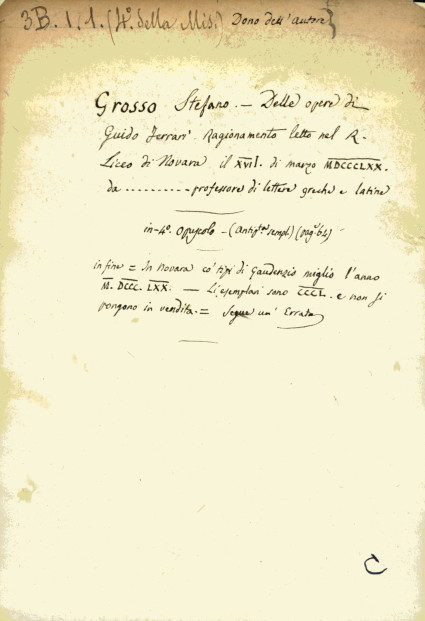 3B. 1. 1. (4º della Mis.) Dono dell'autore
Grosso Stefano. — Delle opere di
Guido Ferrari Ragionamento letto nel R.
Liceo di Novara il XVII. di marzo MDCCCLXX.
da .......... professore di lettere greche e latine
in-4º. Opuscolo — (Antip.ta sempl.) (pag.e 64)
in fine = In Novara co' tipi di Gaudenzio Miglio l'anno
M. DCCC. LXX. — Gli esemplari sono CCCL. e non si
pongono in vendita. = Segue un' Errata
C